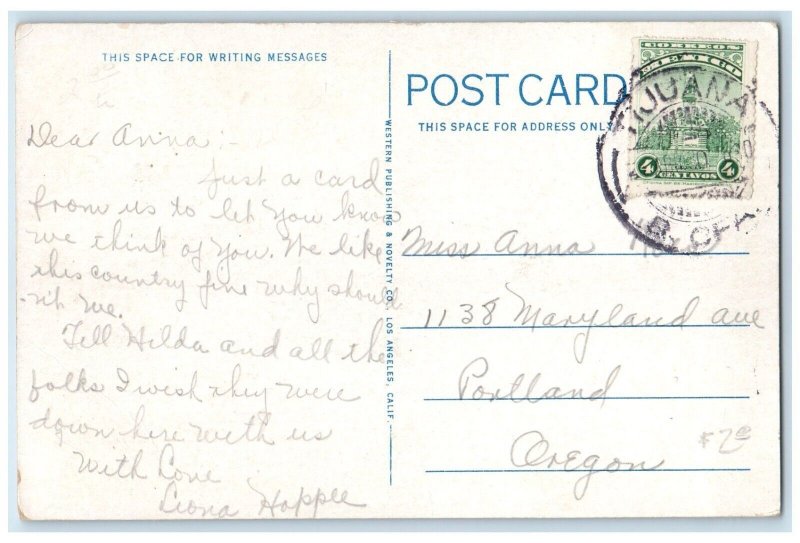 THIS SPACE FOR WRITING MESSAGES
Dear Anna :-
Just a card
from us to let you know
we think of you. We like
this country fine why should
-nt we.
Tell Hilda and all the
folks I wish they were
down here with us
With Love
Leona Hopple
WESTERN PUBLISHING & NOVELTY CO., LOS ANGELES, CALIF.
POST CARD
THIS SPACE FOR ADDRESS ONLY
CORREOS
MEXICO
4 CENTAVOS 4
TIJUANA
B. CFA
Miss Anna
1138 Maryland ave
Portland
Oregon